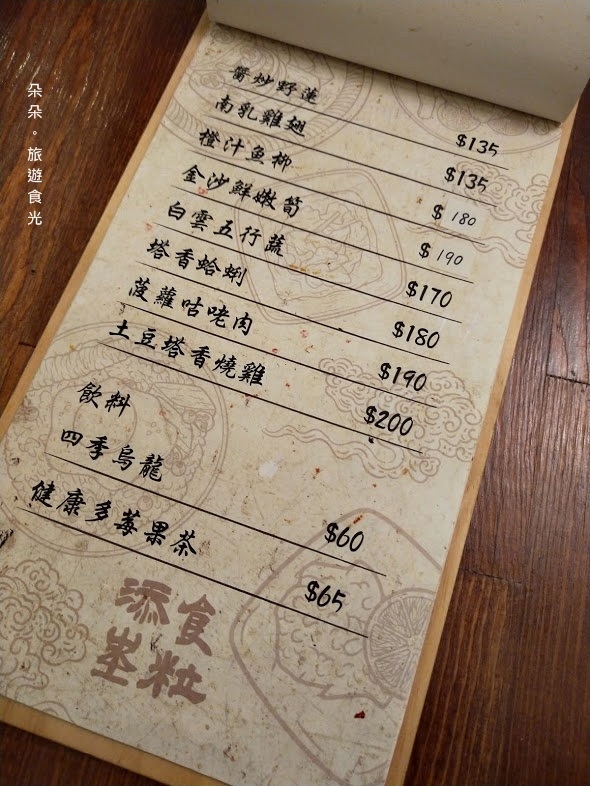 朵朵。旅遊食光
醬炒野蓮 $135
南乳雞翅 $135
橙汁鱼柳 $180
金沙鮮嫩筍 $190
白雲五行蔬 $170
塔香蛤蜊 $180
菠蘿咕咾肉 $190
土豆塔香燒雞 $200
飲料
四季烏龍 $60
健康多莓果茶 $65
添食
粒